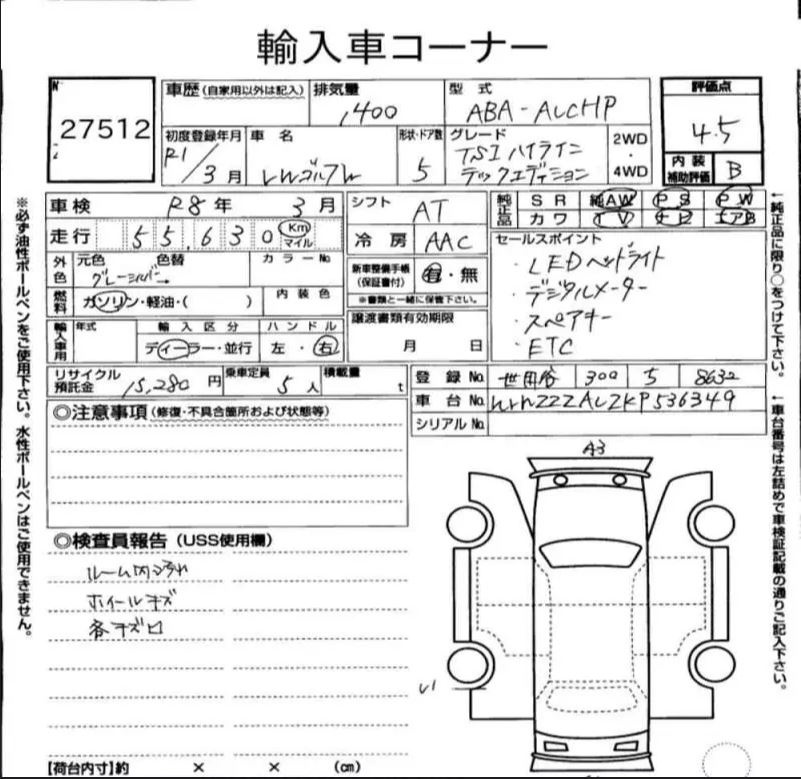 輸入車コーナー
№ 27512
車歴(自家用以外は記入) 排気量 型式 評価点
1400 ABA-AUCHP 4.5
初度登録年月 車名 形状・ドア数 グレード 2WD・4WD 内装補助評価 B
R1/3月 VWゴルフW 5 TSIハイライン
テックエディション
車検 R8年 3月 シフト AT 純正品 SR 純AW PS PW
カワ TV ナビ エアB
走行 55,630 Km マイル 冷房 AAC セールスポイント
外色 元色 色替 カラーNo 新車整備手帳(保証書付) 有・無
グレーシルバー→ ※書類と一緒に保管下さい。
・LEDヘッドライト
燃料 ガソリン・軽油・( ) 内装色 譲渡書類有効期限
・デジタルメーター
輸入車用 年式 輸入区分 ハンドル 月 日
・スペアキー
ディーラー・並行 左・右
・ETC
リサイクル預託金 15,280円 乗車定員 5人 積載量 t 登録No 世田谷 300 5 8632
車台No WVWZZZAUZKP536349
シリアルNo
◎注意事項(修復・不具合箇所および状態等)
A3
◎検査員報告(USS使用欄)
ルーム内汚れ
ホイールキズ
各キズ凹
U1
【荷台内寸】約 × × (cm)
※必ず油性ボールペンをご使用下さい。水性ボールペンはご使用できません。
←純正品に限り○をつけて下さい。
←車台番号は左詰めで車検証記載の通りご記入下さい。